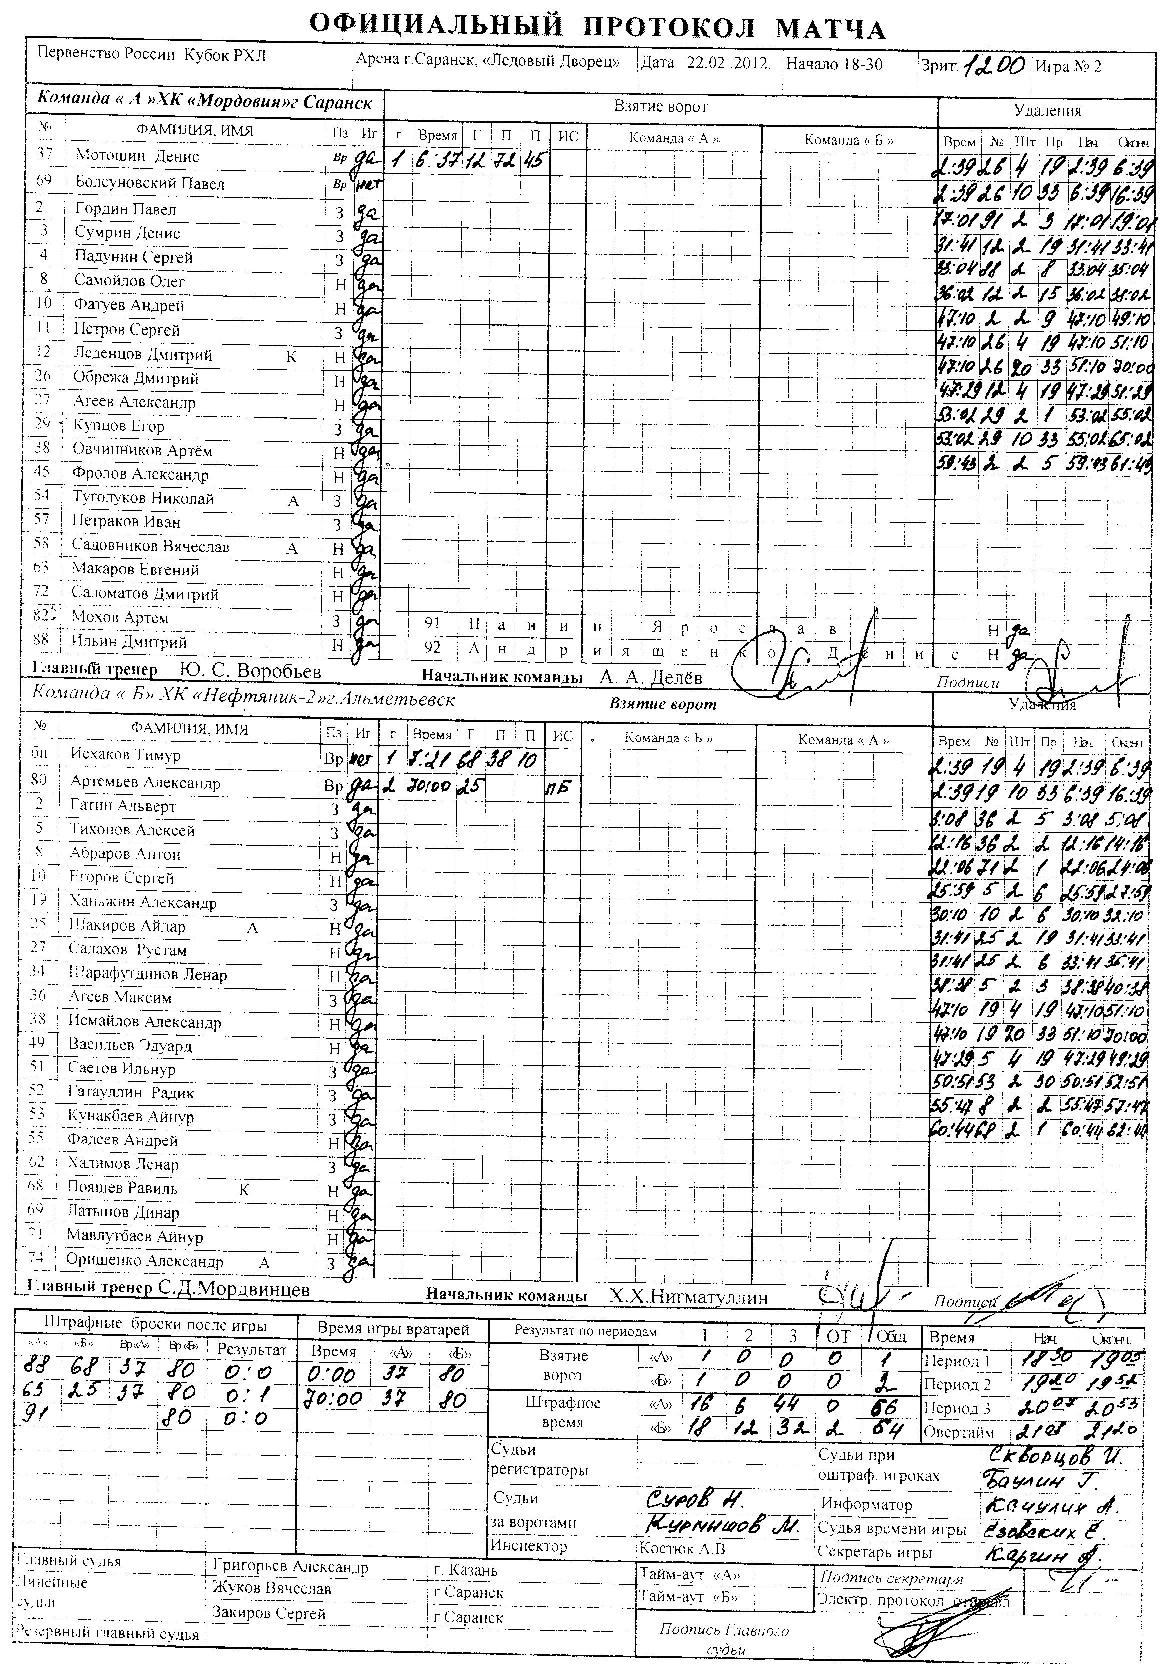 ОФИЦИАЛЬНЫЙ ПРОТОКОЛ МАТЧА
Первенство России Кубок РХЛ Арена г.Саранск, «Ледовый Дворец» Дата 22.02.2012. Начало 18-30 Зрит. 1200 Игра № 2
Команда « А »ХК «Мордовия»г Саранск Взятие ворот Удаления
№ ФАМИЛИЯ, ИМЯ Пз Иг г Время Г П П ИС Команда « А » Команда « Б » Врем № Шт Пр Нач Оконч
37 Мотошин Денис Вр да 1 6:37 12 72 45 2:39 26 4 19 2:39 6:39
69 Болсуновский Павел Вр нет 2:39 26 10 33 6:39 16:39
2 Гордин Павел З да 17:01 91 2 3 17:01 19:01
3 Сумрин Денис З да 31:41 12 2 19 31:41 33:41
4 Падунин Сергей З да 33:04 88 2 8 33:04 35:04
8 Самойлов Олег Н да 36:02 12 2 15 36:02 38:02
10 Фатуев Андрей Н да 47:10 2 2 9 47:10 49:10
11 Петров Сергей З да 47:10 26 4 19 47:10 51:10
12 Леденцов Дмитрий К Н да 47:10 26 20 33 51:10 70:00
26 Обрежа Дмитрий Н да 47:29 12 4 19 47:29 51:29
27 Агеев Александр Н да 53:02 29 2 1 53:02 55:02
29 Купцов Егор З да 53:02 29 10 33 55:02 65:02
38 Овчинников Артём Н да 59:43 2 2 5 59:43 61:43
45 Фролов Александр Н да
54 Туголуков Николай А З да
57 Петраков Иван З да
58 Садовников Вячеслав А Н да
63 Макаров Евгений Н да
72 Саломатов Дмитрий Н да
82 Мохов Артем З да 91 Панин Ярослав Н да
88 Ильин Дмитрий Н да 92 Андриященко Денис Н да
Главный тренер Ю. С. Воробьев Начальник команды А. А. Делёв Подписи
Команда « Б» ХК «Нефтяник-2»г.Альметьевск Взятие ворот Удаления
№ ФАМИЛИЯ, ИМЯ Пз Иг г Время Г П П ИС Команда « Б » Команда « А » Врем № Шт Пр Нач Оконч
60 Исхаков Тимур Вр нет 1 7:21 68 38 10 2:39 19 4 19 2:39 6:39
80 Артемьев Александр Вр да 2 70:00 25 пБ 2:39 19 10 33 6:39 16:39
2 Гатин Альверт З да 3:08 36 2 5 3:08 5:08
5 Тихонов Алексей З да 12:16 36 2 2 12:16 14:16
8 Абраров Антон Н да 22:06 71 2 1 22:06 24:06
10 Егоров Сергей Н да 25:59 5 2 6 25:59 27:59
19 Ханьжин Александр З да 30:10 10 2 6 30:10 32:10
25 Шакиров Айдар А Н да 31:41 25 2 19 31:41 33:41
27 Салахов Рустам Н да 31:41 25 2 6 33:41 35:41
34 Шарафутдинов Ленар Н да 38:38 5 2 3 38:38 40:38
36 Агеев Максим З да 47:10 19 4 19 47:10 51:10
38 Исмайлов Александр Н да 47:10 19 20 33 51:10 70:00
49 Васильев Эдуард Н да 47:29 5 4 19 47:29 49:29
51 Саетов Ильнур З да 50:51 53 2 30 50:51 52:51
52 Гатауллин Радик З да 55:47 8 2 2 55:47 57:47
53 Кунакбаев Айнур З да 60:44 68 2 1 60:44 62:44
55 Фадеев Андрей Н да
62 Халимов Ленар З да
68 Пояшев Равиль К Н да
69 Латыпов Динар Н да
71 Мавлутбаев Айнур Н да
74 Орищенко Александр А З да
Главный тренер С.Д.Мордвинцев Начальник команды Х.Х.Нигматуллин Подписи
Штрафные броски после игры Время игры вратарей Результат по периодам 1 2 3 ОТ Общ Время Нач. Оконч.
«А» «Б» Вр«А» Вр«Б» Результат Время «А» «Б» Взятие ворот «А» 1 0 0 0 1 Период 1 18 30 19 05
88 68 37 80 0:0 0:00 37 80 «Б» 1 0 0 0 2 Период 2 19 20 19 52
63 25 37 80 0:1 70:00 37 80 Штрафное время «А» 16 6 44 0 66 Период 3 20 07 20 53
91 80 0:0 «Б» 18 12 32 2 64 Овертайм 21 08 21 20
Судьи регистраторы Судьи при оштраф. игроках Скворцов И.
Баулин Г.
Судьи за воротами Суров Н. Информатор
Курмышов М. Судья времени игры Езовских Е.
Инспектор Костюк А.В Секретарь игры Каргин А.
Главный судья Григорьев Александр г. Казань Тайм-аут «А» Подпись секретаря
Линейные судьи Жуков Вячеслав г Саранск Тайм-аут «Б» Электр. протокол
Закиров Сергей г Саранск
Резервный главный судья Подпись Главного судьи